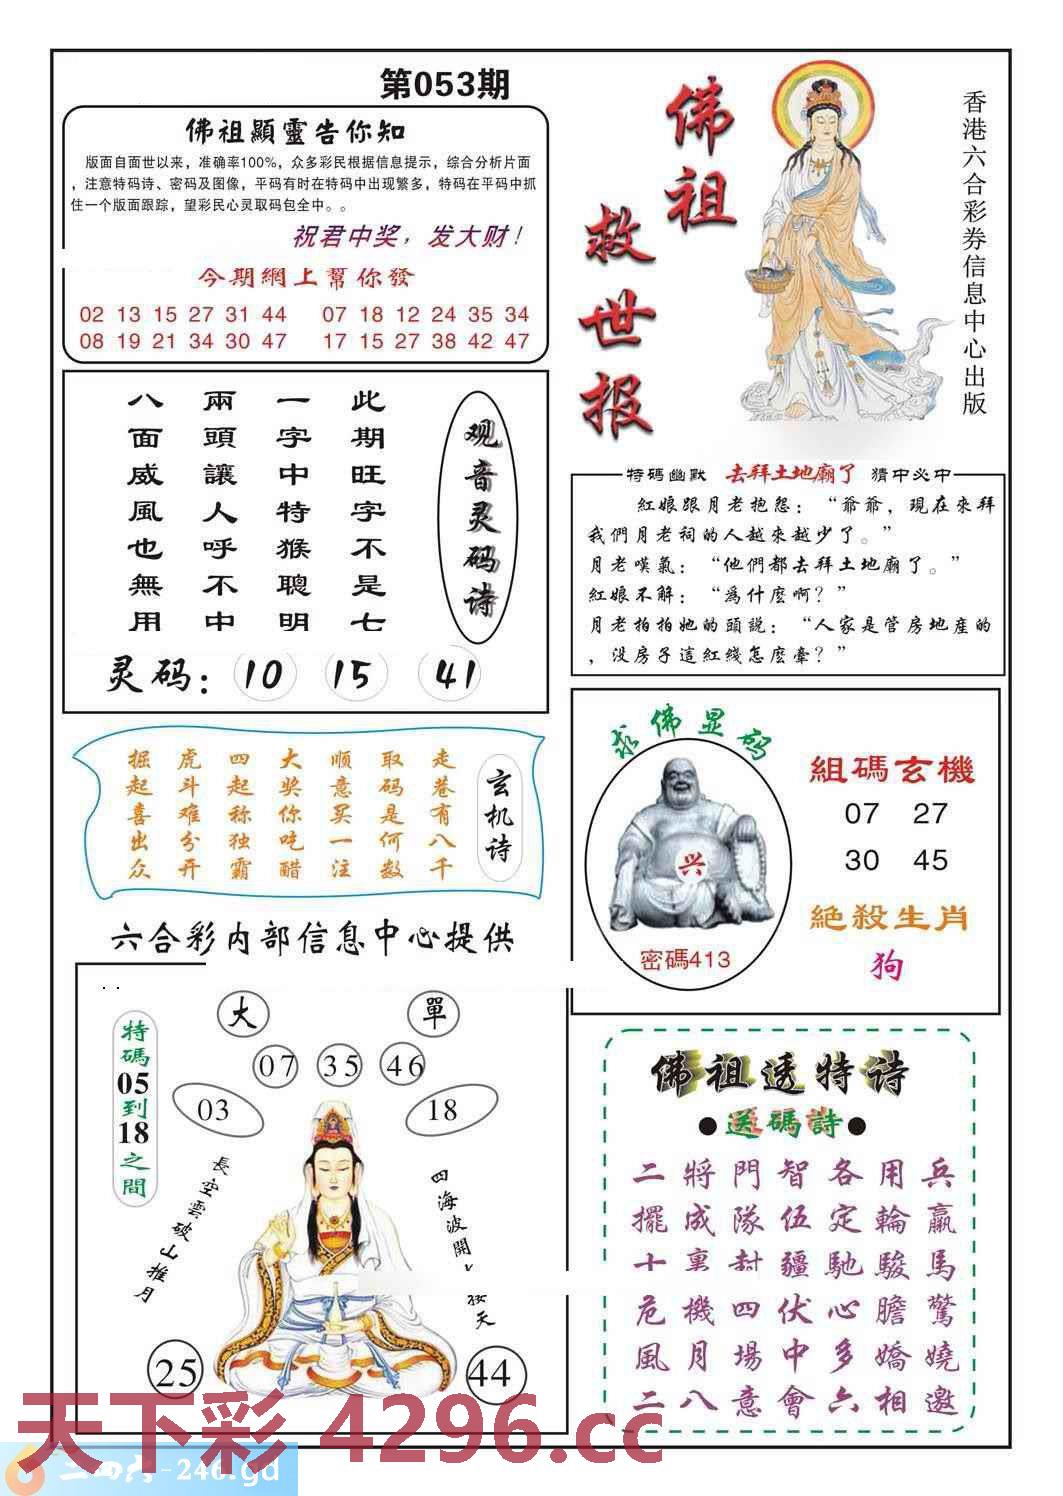 第053期
佛祖顯靈告你知
版面自面世以来，准确率100%，众多彩民根据信息提示，综合分析片面
，注意特码诗、密码及图像，平码有时在特码中出现繁多，特码在平码中抓
住一个版面跟踪，望彩民心灵取码包全中。。
祝君中奖，发大财！
今期網上幫你發
02 13 15 27 31 44 07 18 12 24 35 34
08 19 21 34 30 47 17 15 27 38 42 47
佛祖
救世报
香港六合彩券信息中心出版
观音灵码诗
此期旺字不是七
一字中特猴聰明
兩頭讓人呼不中
八面威風也無用
灵码：10 15 41
特碼幽默 去拜土地廟了 猜中必中
紅娘跟月老抱怨：“爺爺，現在來拜
我們月老祠的人越來越少了。”
月老嘆氣：“他們都去拜土地廟了。”
紅娘不解：“爲什麼啊？”
月老拍拍她的頭説：“人家是管房地産的
，没房子這紅綫怎麽牽？”
玄机诗
走巷有八千
取码是何数
顺意买一注
大奖你吃醋
四起称独霸
虎斗难分开
掘起喜出众
求佛显码
兴
密碼413
組碼玄機
07 27
30 45
絕殺生肖
狗
六合彩内部信息中心提供
特碼05到18之間
大 單
07 35 46
03 18
長空雲破山推月
四海波開 接天
25 44
佛祖透特诗
●送碼詩●
二將門智各用兵
擺成隊伍定輪贏
十裏封疆馳駿馬
危機四伏心膽驚
風月場中多嬌嬈
二八意會六相邀
天下彩 4296.cc
二四六-246.gd